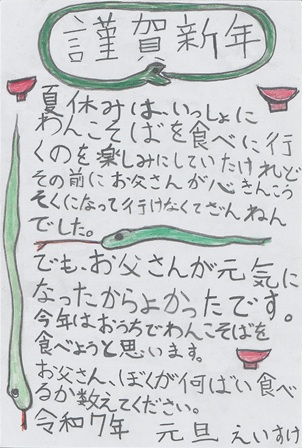 謹賀新年
夏休みは、いっしょに
わんこそばを食べに行
くのを楽しみにしていたけれど
その前にお父さんが心きんこう
そくになって行けなくてざんねん
でした。
でも、お父さんが元気に
なったからよかったです。
今年はおうちでわんこそばを
食べようと思います。
お父さん、ぼくが何ばい食べ
るか数えてください。
令和7年 元旦 えいすけ